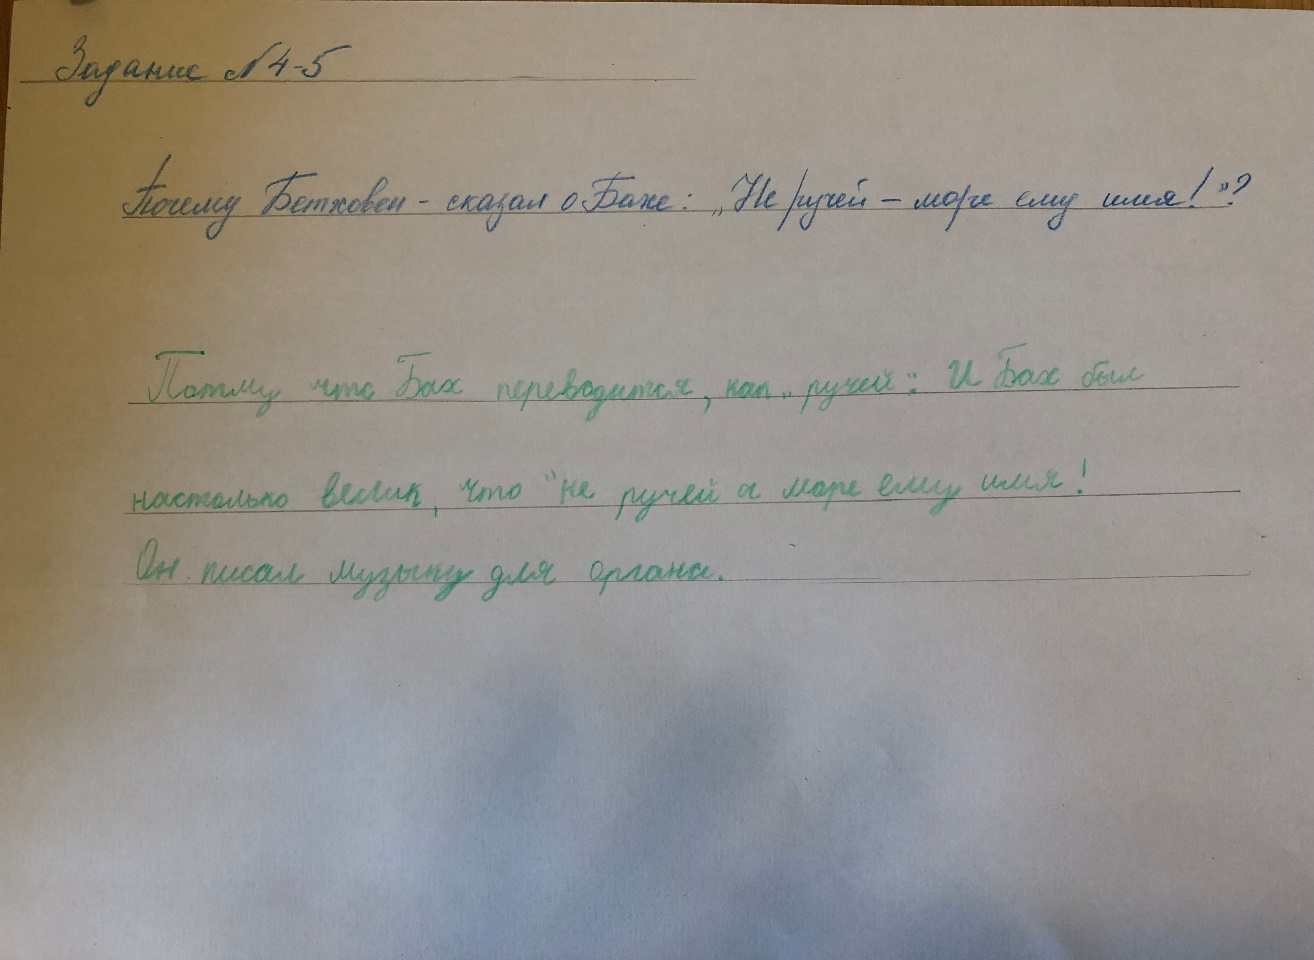 Задание №4-5
Почему Бетховен - сказал о Бахе: „Не ручей – море ему имя!"?
Потму что Бах переводится, как „ручей". И Бах был
настолько велик, что "не ручей а море ему имя!
Он писал музыку для органа.